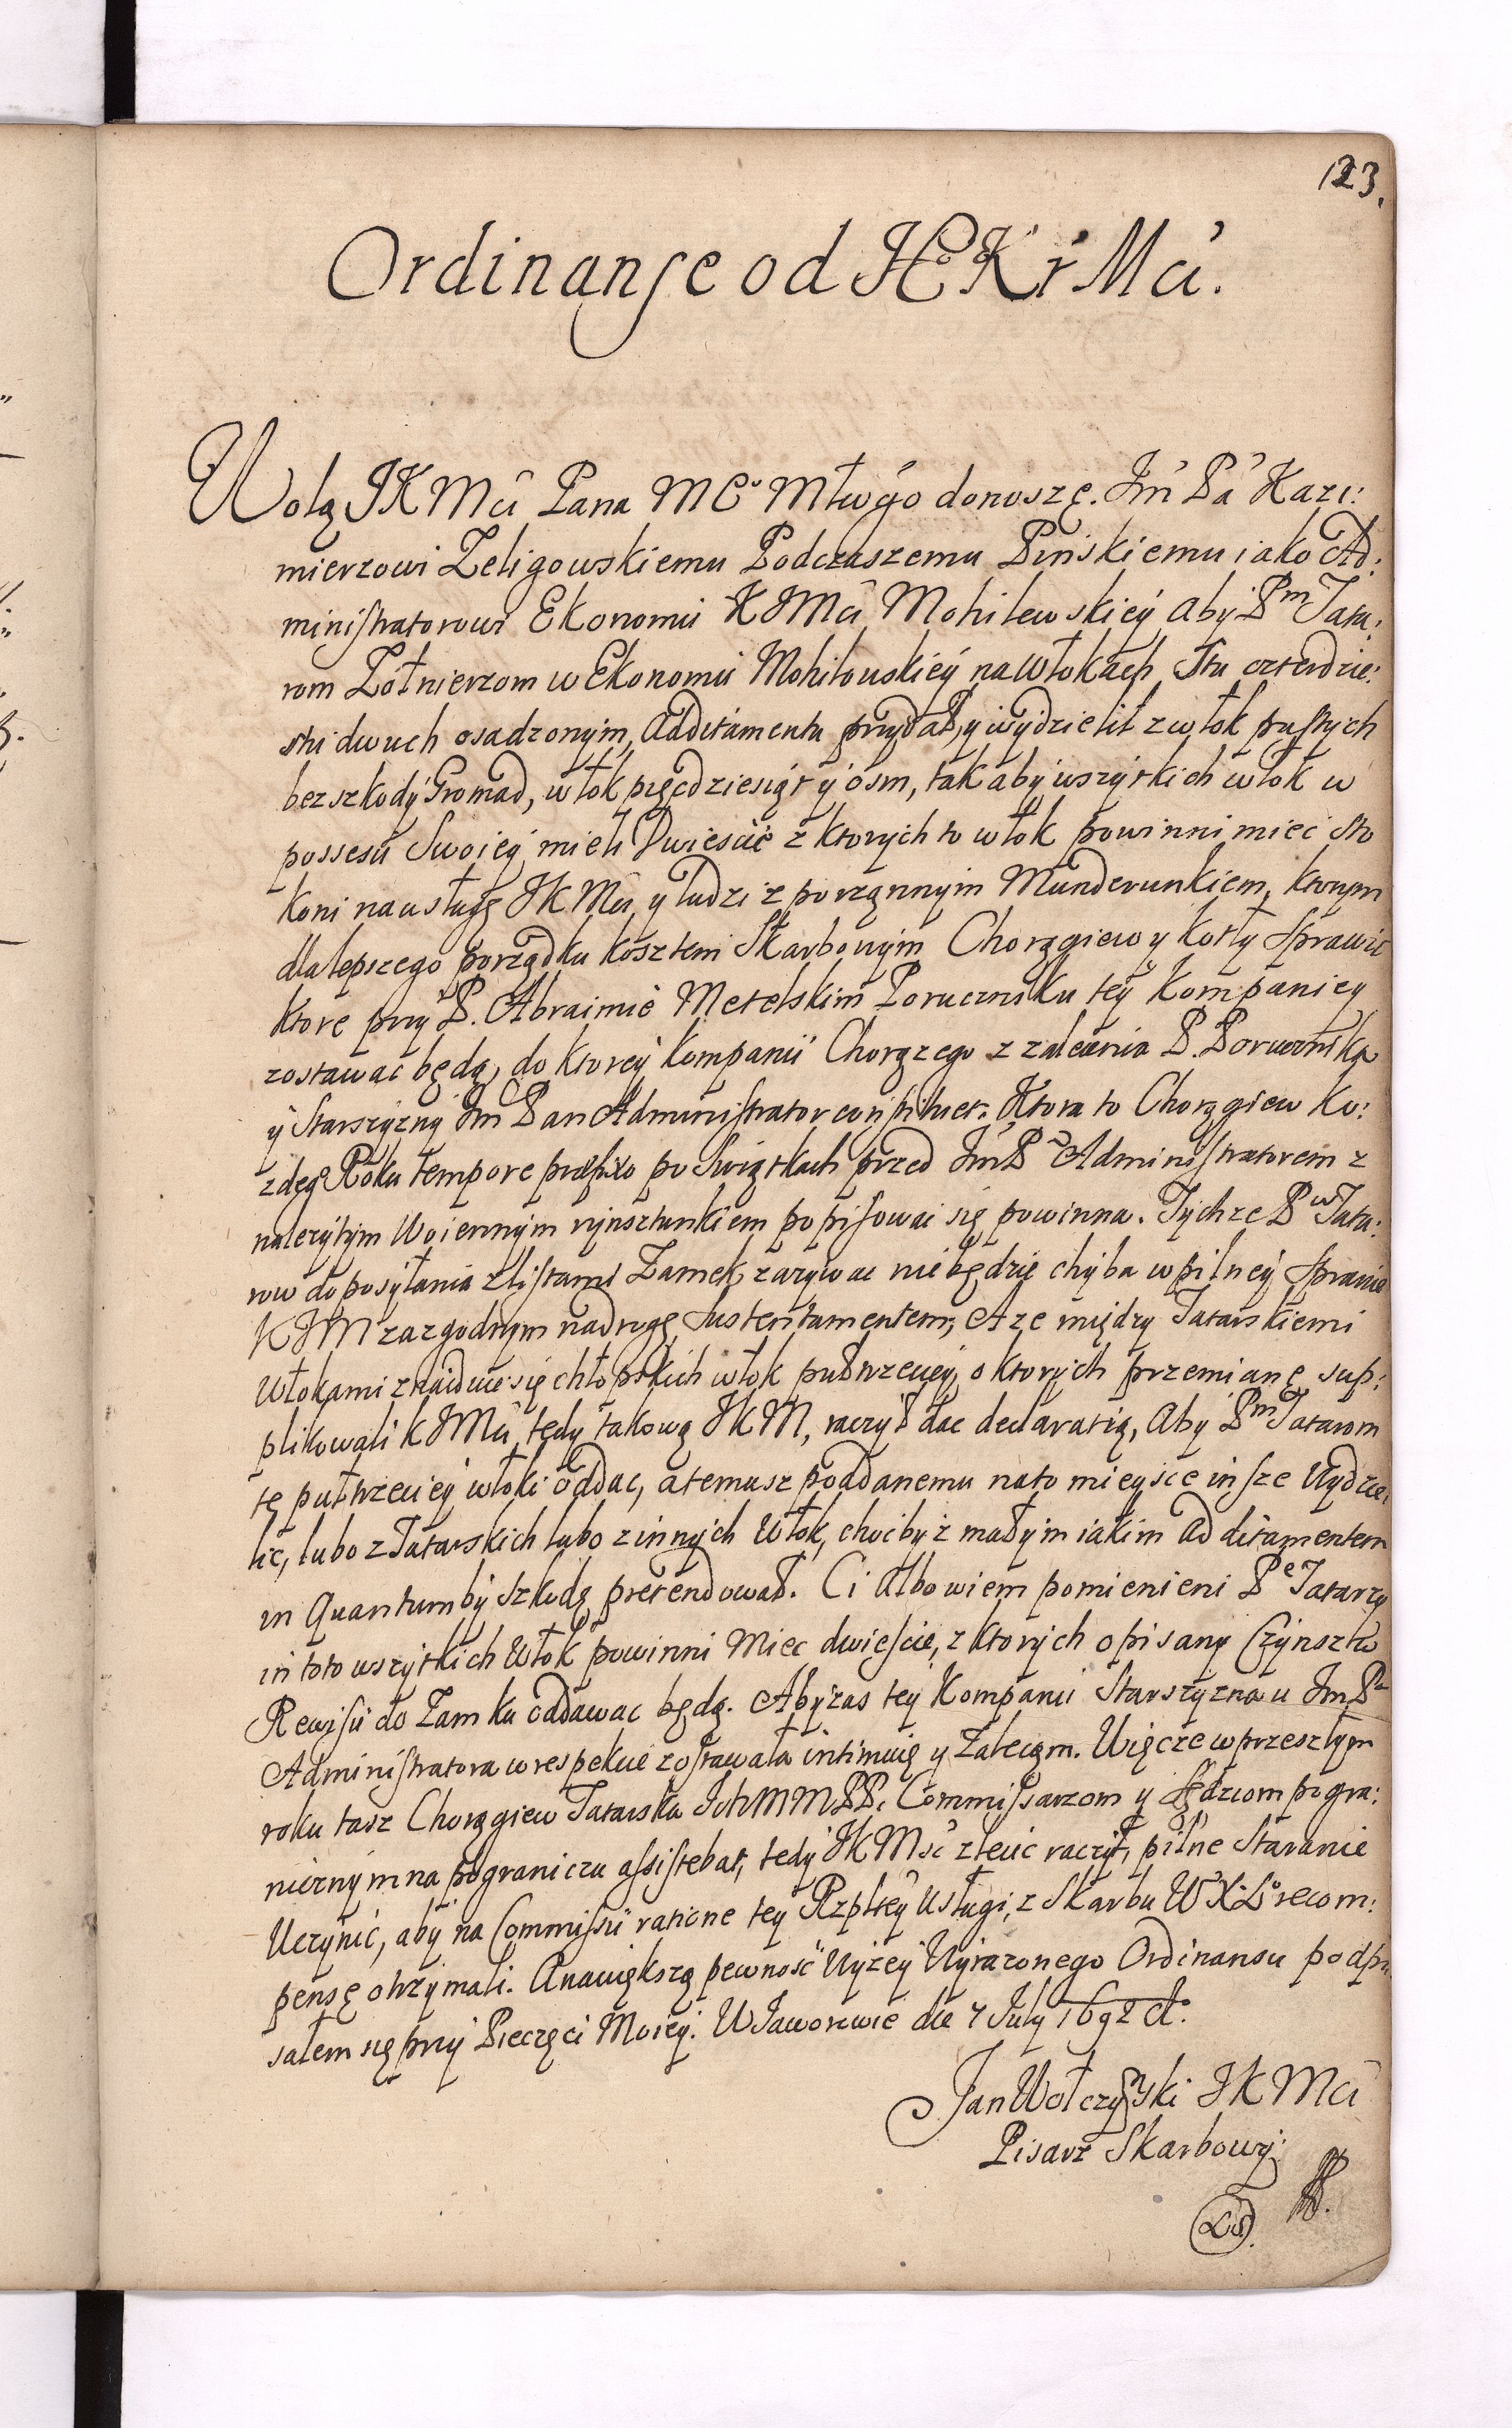 123.
Ordinanse od JE° K i Mći.
Wolą JKMći Pana MG° Młwégo donoszę. Jm̃ Pã Kazi:
mierzowi Zeligowskiemu Podczaszemu Pinskiemu iako Ad:
ministratorowi Ekonomii KJMći Mohilewskiéy aby P^m Tata:
rom Żołnierzom w Ekonomii Mohilowskiéy na Włokach Stu czterdzie:
stu dwuch osadzonym, additamentu przydał, y wydzielił z włok pustych
bez szkody Gromad, włok pięćdziesiąt y ośm, tak aby wszytkich włok w
possesii Swoiéy mieli Dwieście z ktorych to włok powinni mieć sto
koni na usługę JKMći y ludzi z porządnym Munderunkiem, ktorym
dla lepszego porządku kosztem Skarbowym Chorągiew y Kotły sprawić
ktore przy P. Abraimie Metelskim Poruczniku téy Kompaniey
zostawać będą, do ktoréy kompanii Chorążego z zalecenia P. Porucznika
y Starszyzny Jm Pan Administrator constituet. Ktora to Chorągiew Ko:
żdeg° Roku tempore præfixo po Swiątkach przed Jm̃P Administratorem z
należytym Woiennym rynsztunkiem popisować się powinna. Tychże P^w Tata:
row do posyłania z listami Zamek zażywać nie będzie chyba w pilnéy sprawie
KJM za zgodnym na drogę sustentamentem, A że między Tatarskiemi
Włokami znaiduie się chłopskich włok pułtrzeciéy, o ktorych przemianę sup:
plikowali KJMći, tedy takową JKM, raczył dać declaratią, aby P^m Tatarom
te pułtrzeciéy włoki oddać, a temusz poddanemu na to mieysce insze Wydzie:
lić, lubo z Tatarskich lubo z innych Włok, choćby z małym iakim additamentem
in quantum by szkodę pretendował. Ci albowiem pomienieni P^e Tatarzy
in toto wszytkich Włok powinni mieć dwieście, z ktorych opisany Czynsz w
Rewisii do Zamku oddawać będą. Aby zas téy Kompanii Starszyzna u JmP^a
Administratora w respekcie zostawała intimuię y Zalecam. Więc że w przeszłym
roku tasz Chorągiew Tatarska JchMMPP. Commissarzom y Sędziom pogra:
nicznym na pograniczu assistebat, tedy JKMść zlecić raczył, pilne Staranie
Uczynić, aby na Commissii ratione téy Rzpltéy Usługi, z Skarbu WXL° recom:
pensę otrzymali. A na większą pewność Wyżéy Wyrażonego Ordinansu podpi:
sałem się przy Pieczęci Moiéy. W Jaworowie die 7 July 1692 A°.
Jan Wołczyński JKMći
Pisarz Skarbowy.
LS.